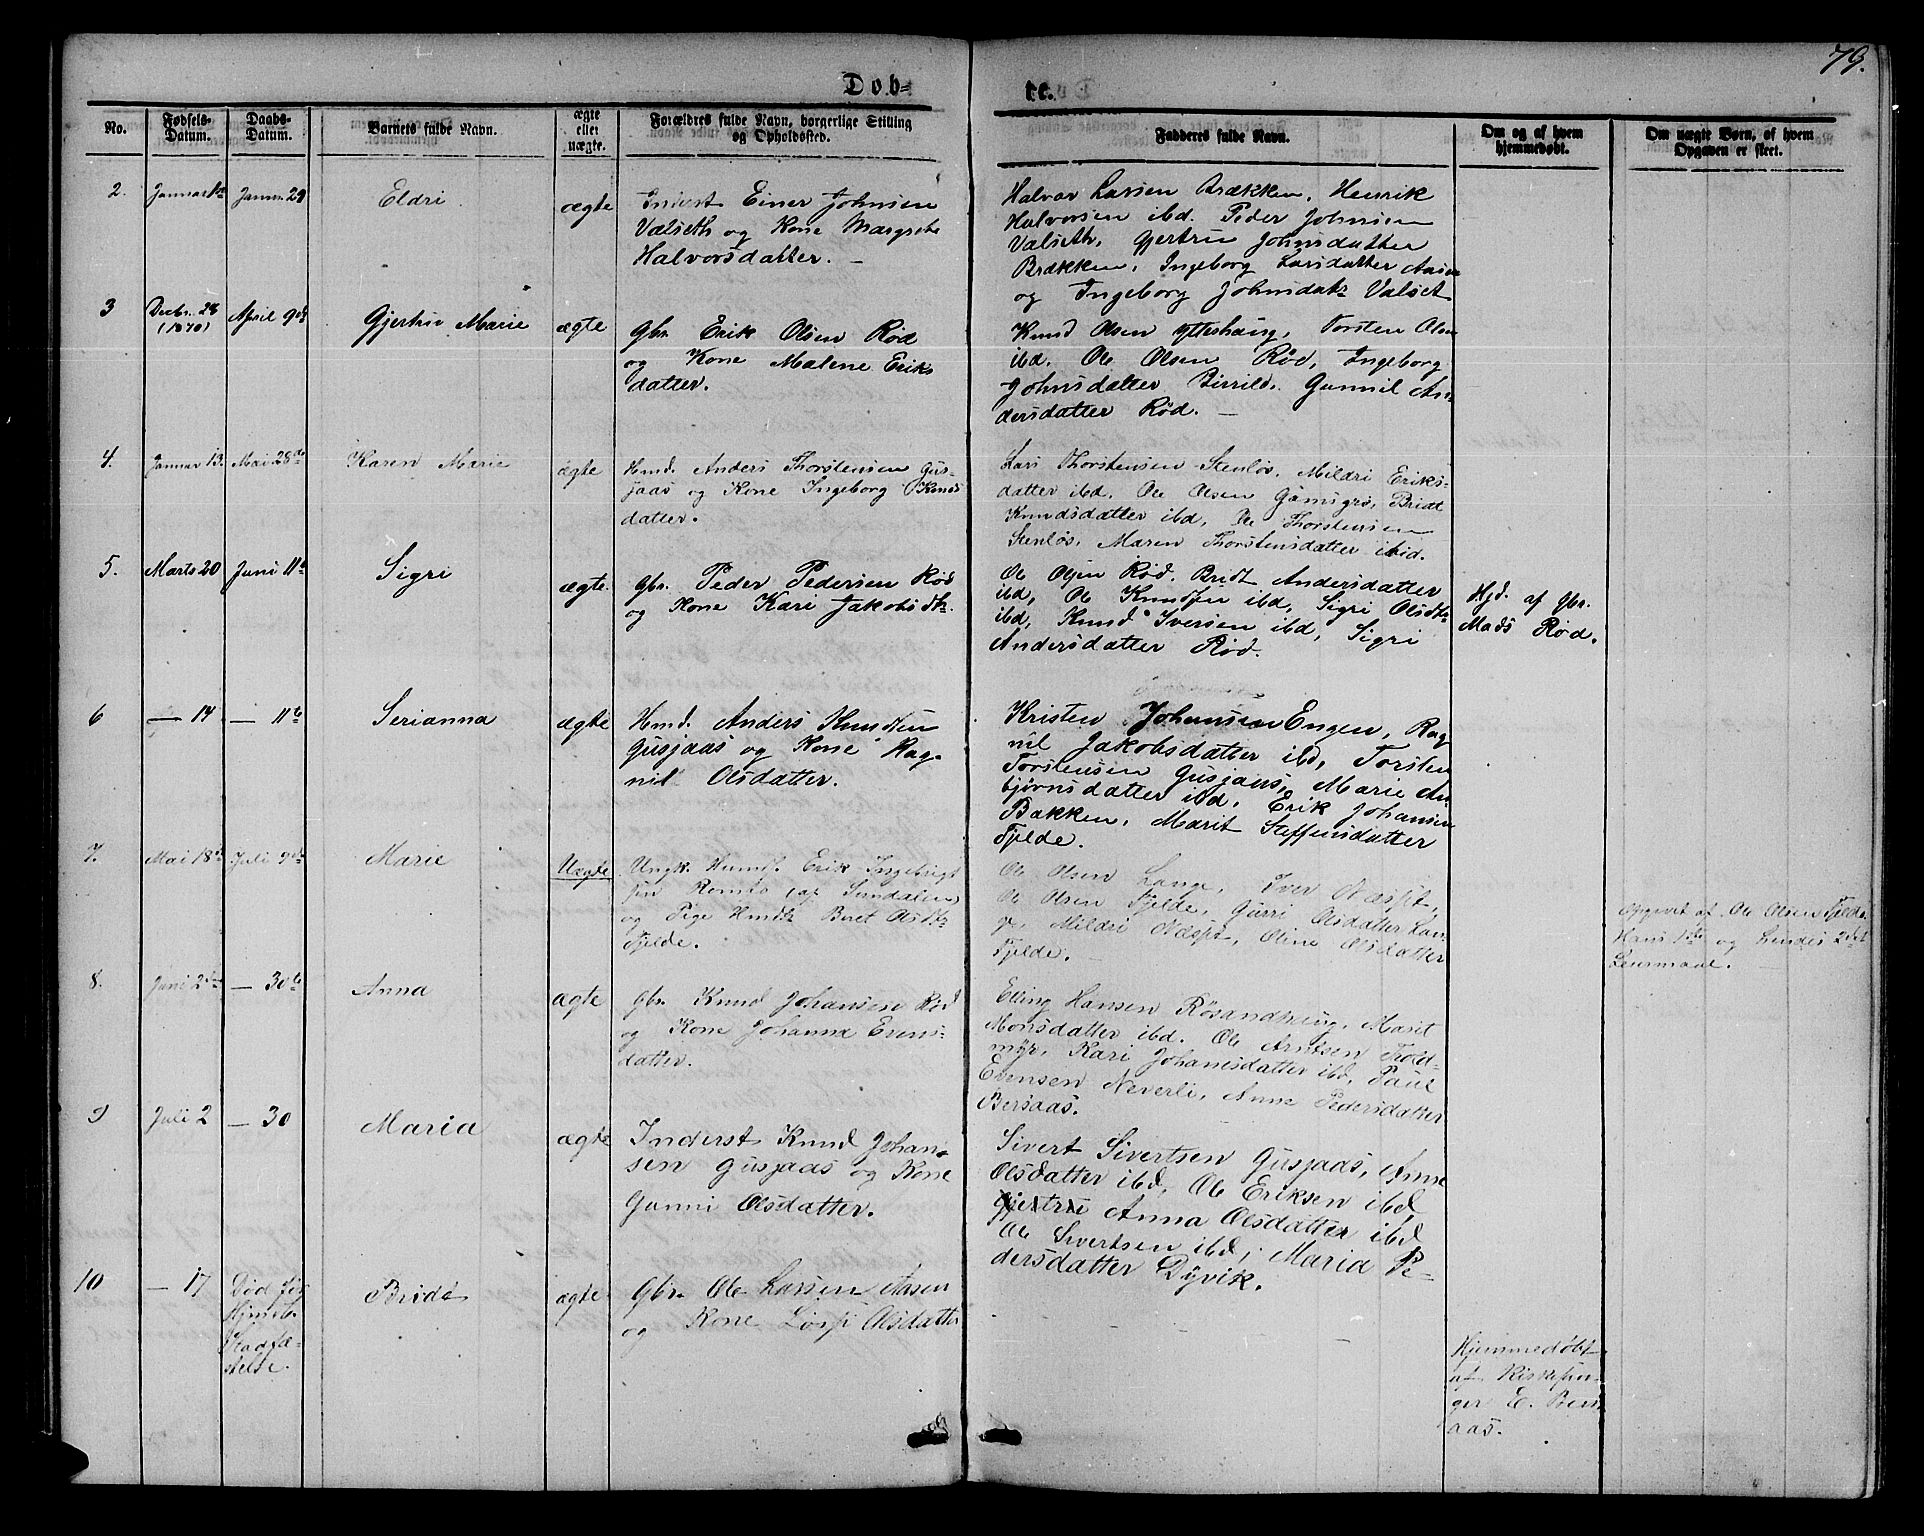 79.
Døb-
te.
No.
Fødsels-
Datum.
Daabs-
Datum.
Barnets fulde Navn.
ægte
eller
uægte.
Forældres fulde Navn, borgerlige Stilling
og Opholdssted.
Fadderes fulde Navn.
Om og af hvem
hjemmedøbt.
Om uægte Børn, af hvem
Opgaven er skeet.
2.
Januar 1ste
Januar 29
Eldri
ægte
Inderst Einer Johnsen
Valseth og Kone Margrete
Halvorsdatter. —
Halvor Larsen Brækken, Henrik
Halvorsen ibd. Peder Johnsen
Valseth, Gjertru Johnsdatter
Brækken, Ingeborg Larsdatter Aasen
og Ingeborg Johnsdatr Valset
3
Decbr. 28
(1870)
April 9de
Gjertru Marie
ægte
Gbr. Erik Olsen Rød
og Kone Malene Eriks
datter.
Knud Olsen Ytterhaug, Torsten Olsen
ibd. Ole Olsen Rød, Ingeborg
Johnsdatter Birrild, Gunnil An-
dersdatter Rød. —
4.
Januar 13.
Mai 28de
Karen Marie
ægte
Hmd. Anders Thorstensen Gus-
jaas og Kone Ingeborg Knuds
datter.
Lars Thorstensen Stenløs, Mildri Eriks-
datter ibd, Ole Olsen Gamsgrø, Bridt
Knudsdatter ibd, Ole Thorstensen
Stenløs, Maren Thorstensdatter ibid.
5.
Marts 20
Juni 11te
Sigri
ægte.
Gbr. Peder Pedersen Rød
og Kone Kari Jakobsdtr.
Ole Olsen Rød, Bridt Andersdatter
ibd, Ole Knudsen ibd, Sigri Olsdtr
ibd, Knud Iversen ibd, Sigri
Andersdatter Rød.
Hjd. af Gbr.
Mads Rød.
6
— 14
— 11te
Serianna
ægte
Hmd. Anders Knudsen
Gusjaas og Kone Rag-
nil Olsdatter.
Kristen Johansen Engen, Rag
nil Jakobsdatter ibd, Torsten
Torstensen Gusjaas, Marie An
bjørnsdatter ibd, Erik Johansen
Bakken, Marit Steffensdatter
Fjelde.
7.
Mai 18de
Juli 9de
Marie
Uægte
Ungk. Husmf. Erik Ingebrigt
sen Romfo (af Sundalen)
og Pige Hmdtr Beret Olsdtr
Fjelde.
Ole Olsen Lange, Iver Næsset,
Ole Olsen Fjelde, Gurri Olsdatter Lan-
ge, Mildri Næsset, Oline Olsdatter
Fjelde. —
Opgivet af Ole Olsen Fjelde.
Hans 1ste og hendes 2det
Leiermaal. —
8.
Juni 2den
— 30te
Anna
ægte
Gbr. Knud Johansen Rød
og Kone Johanna Evens-
datter.
Elling Hansen Røsandhaug, Marit
Monsdatter ibd. Ole Arntsen Trold-
myr, Kari Johansdatter ibd, Paul
Evensen Neverli, Anne Pedersdatter
Bersaas.
9
Juli 2
— 30
Maria
ægte
Inderst Knud Johan-
sen Gusjaas og Kone
Gunni Olsdatter.
Sivert Sivertsen Gusjaas, Anne
Olsdatter ibd, Ole Eriksen ibd,
Gjertru Anna Olsdatter ibd
Ole Sivertsen ibd, Maria Pe-
dersdatter Dyvik.
10
— 17
Død før
Hjmdb.
Stadfæ-
stelse.
Bride
ægte
Gbr. Ole Larsen Aasen
og Kone Olsdatter
Hjemmedøbt
af Kirkesan-
ger E. Bers
aas.